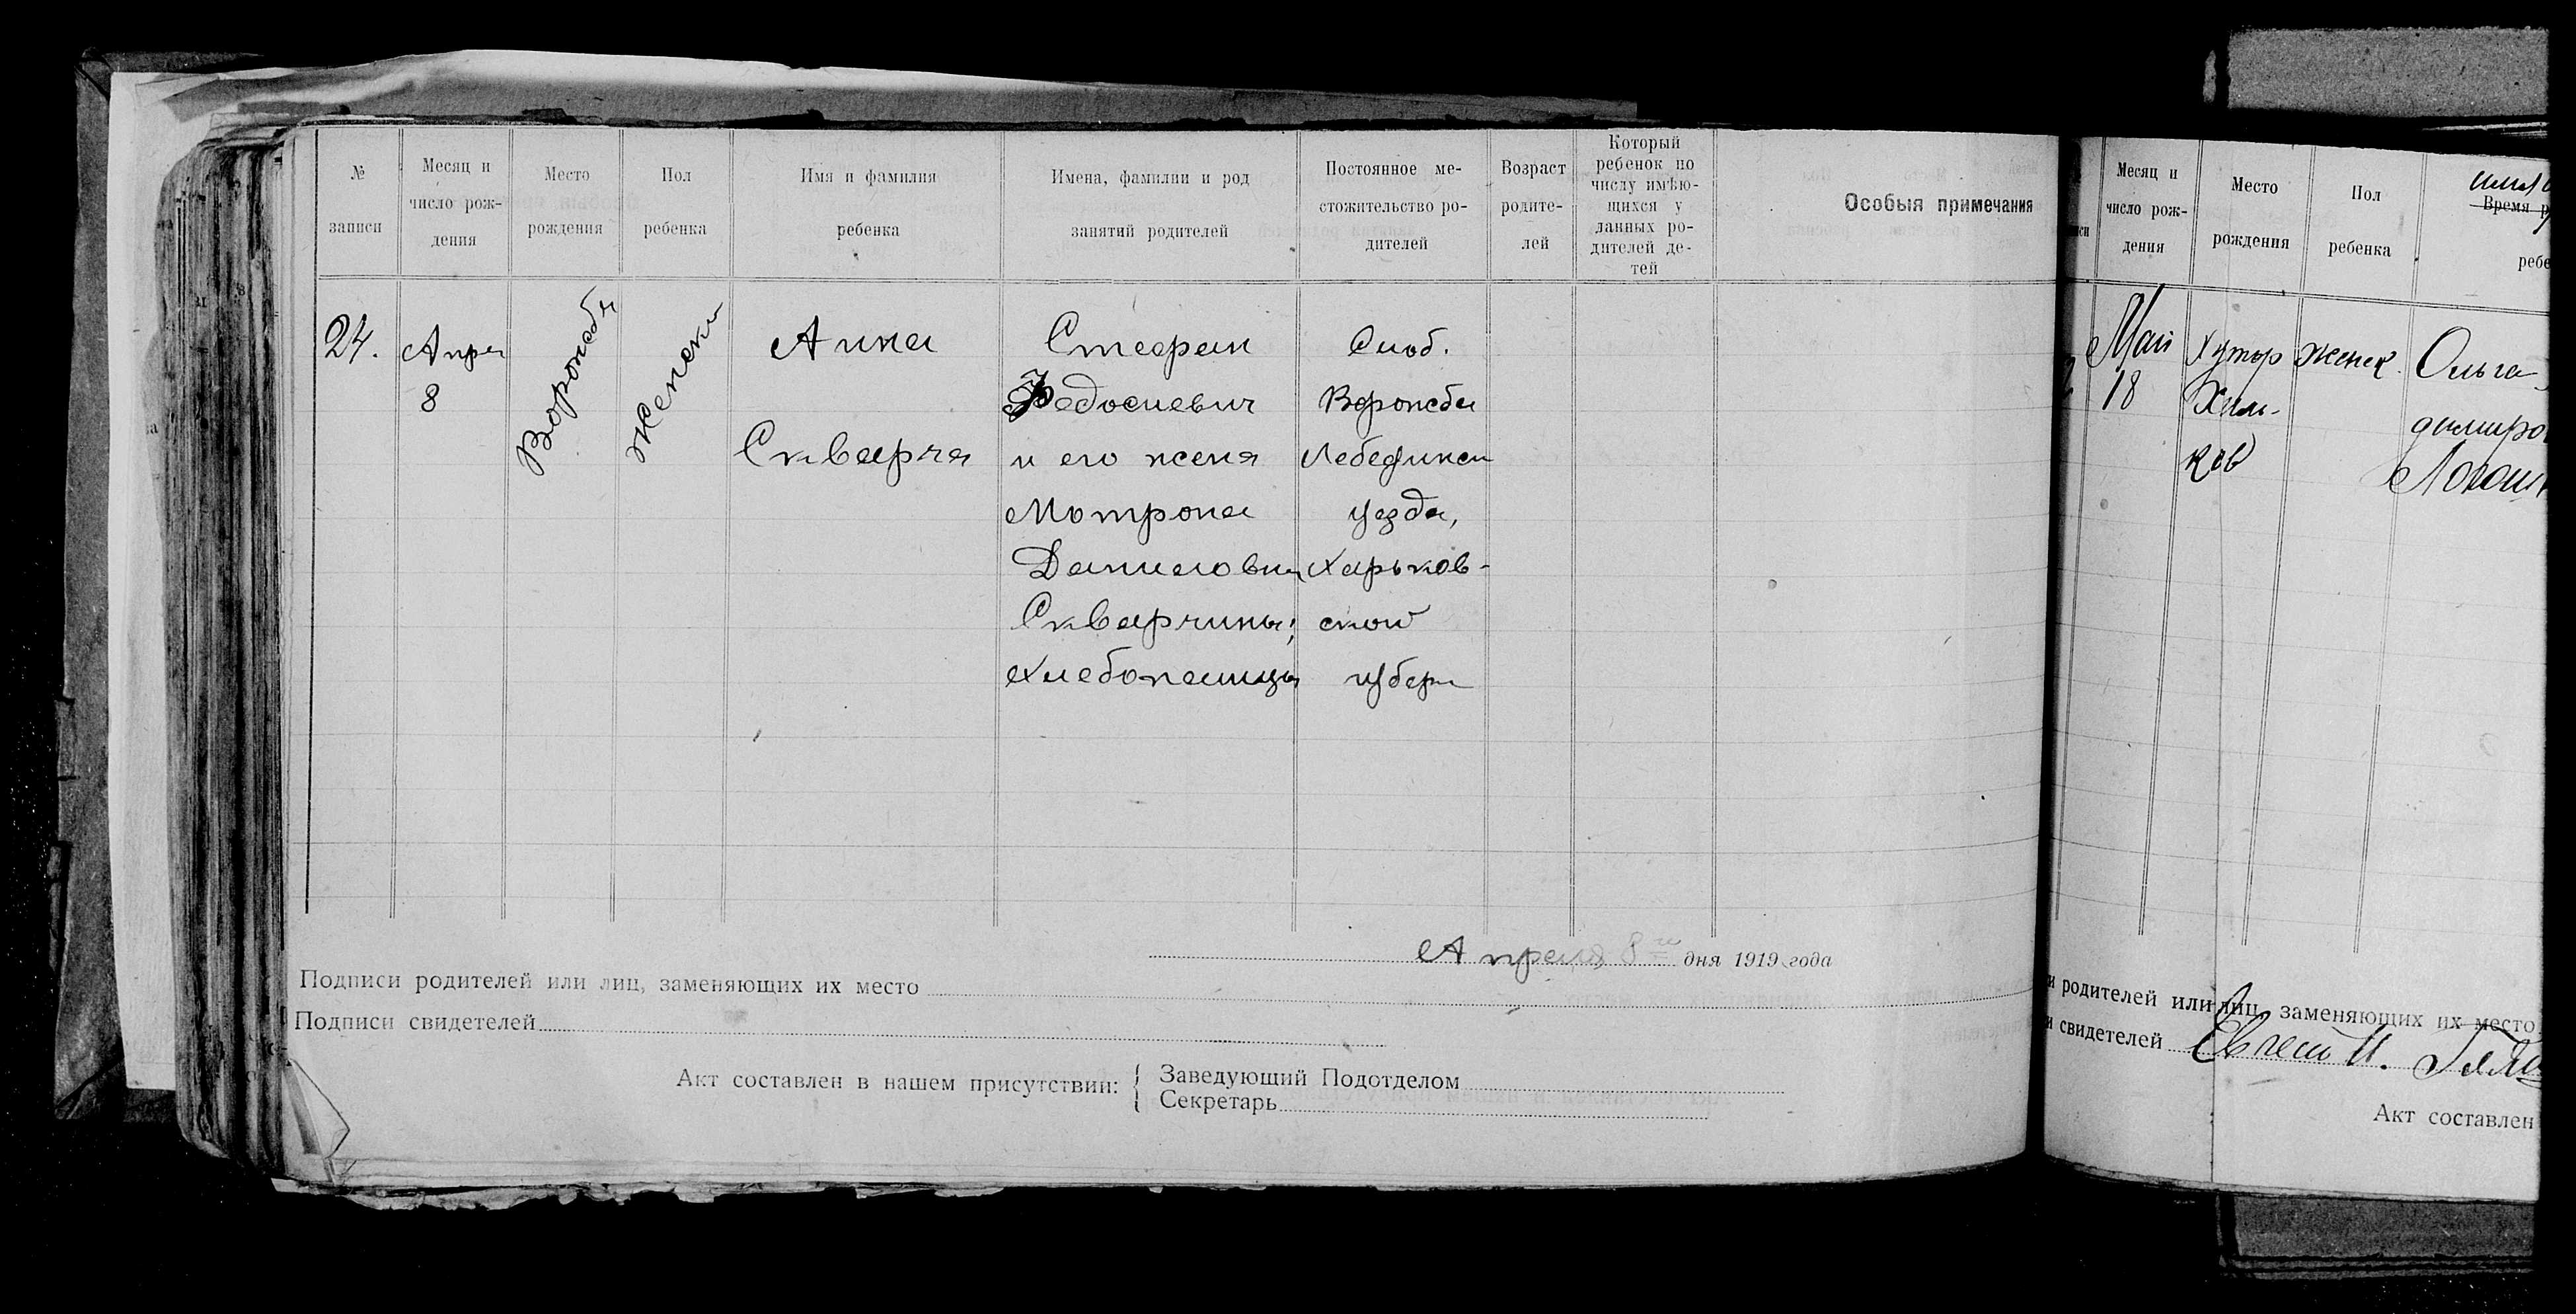 № записи
Месяц и число рождения
Место рождения
Пол ребенка
Имя и фамилия ребенка
Имена, фамилии и род занятий родителей
Постоянное местожительство родителей
Возраст родителей
Который ребенок по числу имѣющихся у данных родителей детей
Особыя примечания
24.
Апрел
8
Ворожба
Женски
Анна
Скварча
Стефан
Федосиевич
и его жена
Мотрона
Даниловна
Скварчины;
хлебопашцы
Слоб.
Ворожба
Лебединск
уезда,
Харьков-
ской
губерн
Апреля 8го дня 1919 года
Подписи родителей или лиц, заменяющих их место
Подписи свидетелей
Акт составлен в нашем присутствии:
Заведующий Подотделом
Секретарь
Месяц и
число рож-
дения
Место
рождения
Пол
ребенка
Время р
ребе
Май
18
Хутор
Хиль-
ков
женск.
Ольга
димиро
и родителей или лиц, заменяющих их место
и свидетелей
Акт составлен